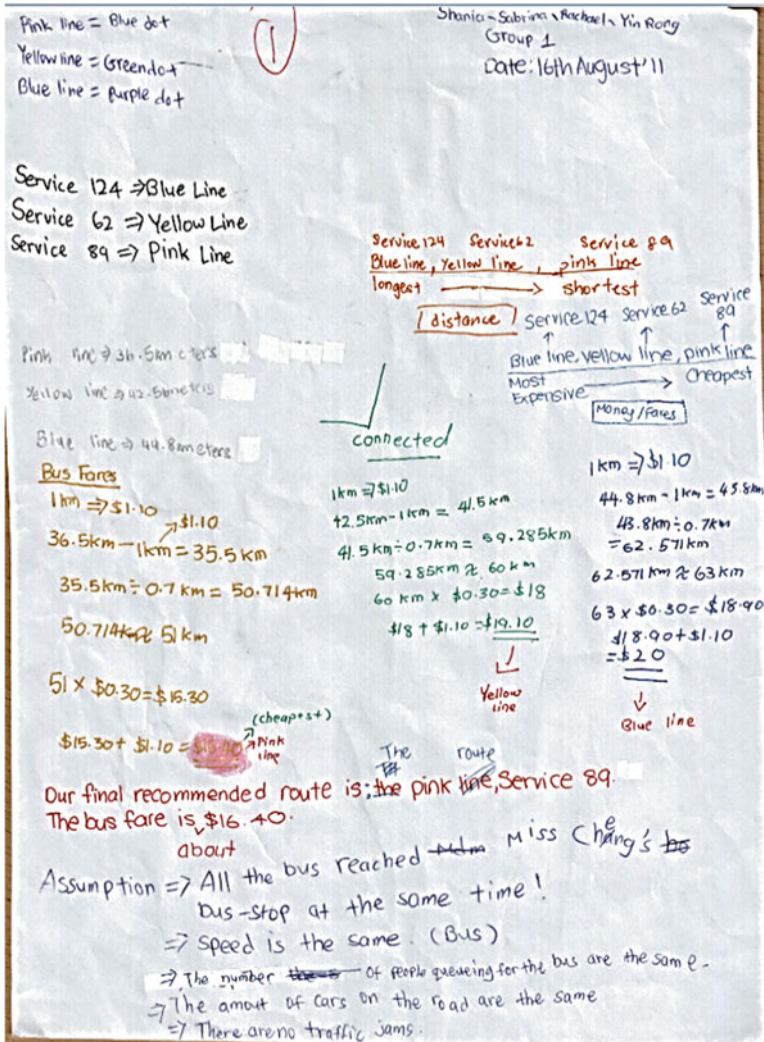 Pink line = Blue dot
Yellow line = Green dot
Blue line = purple dot
1
Shania, Sabrina, Rachael, Yin Rong
Group 1
Date: 16th August'11
Service 124 => Blue Line
Service 62 => Yellow Line
Service 89 => Pink Line
Service 124 Service 62 Service 89
Blue line, Yellow line, pink line
longest → shortest
distance
Service 124 Service 62 Service 89
↑ ↑ ↑
Blue line, yellow line, pink line
Most Expensive → Cheapest
Money/Fares
Pink line => 36.5km eters
Yellow line => 42.5 meters
Blue line => 44.8km eters
Bus Fares
1km => $1.10
$1.10
36.5km - 1km = 35.5km
35.5km ÷ 0.7km = 50.714km
50.714km ≈ 51 km
51 x $0.30 = $15.30
(cheapest)
$15.30 + $1.10 = $16.40 Pink line
connected
1km => $1.10
42.5km - 1km = 41.5km
41.5km ÷ 0.7km = 59.285km
59.285km ≈ 60km
60 km x $0.30 = $18
$18 + $1.10 = $19.10
Yellow line
1km => $1.10
44.8km - 1km = 45.8km
43.8km ÷ 0.7km
= 62.571km
62.571km ≈ 63km
63 x $0.30 = $18.90
$18.90 + $1.10
= $20
Blue line
The route
Our final recommended route is; the pink line, Service 89.
The bus fare is $16.40.
about
Assumption => All the bus reached Mdm Miss Cheng's bo
bus-stop at the same time!
=> Speed is the same. (Bus)
=> The number of people queueing for the bus are the same.
=> The amout of cars on the road are the same
=> There are no traffic jams.